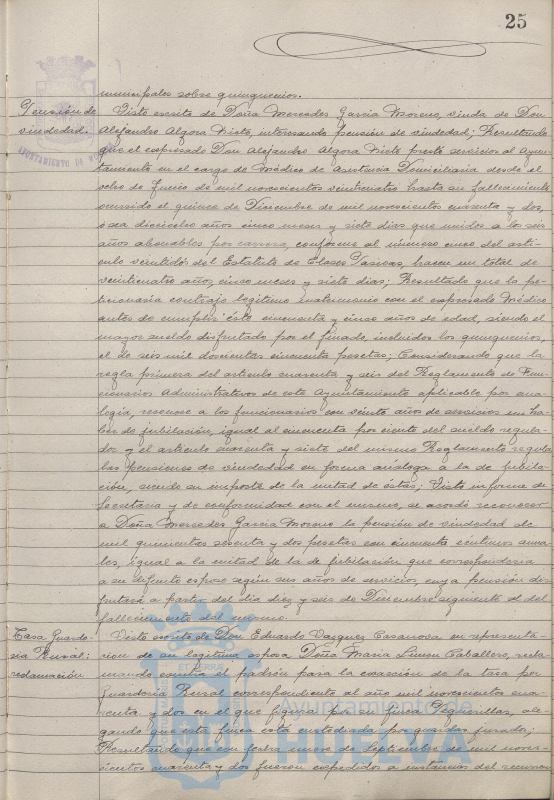 25
municipales sobre quinquenios.
Pensión de
viudedad.
Visto escrito de Doña Mercedes García Moreno, viuda de Don
Alejandro Algora Nieto, interesando pensión de viudedad; Resultando
que el expresado Don Alejandro Algora Nieto prestó servicios al Ayun-
tamiento en el cargo de Médico de Asistencia Domiciliaria desde el
ocho de Junio de mil novecientos veinticuatro hasta su fallecimiento
ocurrido el quince de Diciembre de mil novecientos cuarenta y dos,
o sea dieciocho años cinco meses y siete días que unidos a los seis
años abonables por carrera, conforme al número cinco del artí-
culo veintidós del Estatuto de Clases Pasivas, hacen un total de
veinticuatro años, cinco meses y siete días; Resultado que la pe-
ticionaria contrajo legítimo matrimonio con el expresado Médico
antes de cumplir éste cincuenta y cinco años de edad, siendo el
mayor sueldo disfrutado por el finado, incluidos los quinquenios,
el de seis mil doscientas cincuenta pesetas; Considerando que la
regla primera del artículo cuarenta y seis del Reglamento de Fun-
cionarios Administrativos de este Ayuntamiento aplicable por ana-
logía, reconoce a los funcionarios con veinte años de servicios un ha-
ber de jubilación, igual al cincuenta por ciento del sueldo regula-
dor y el artículo cuarenta y siete del mismo Reglamento regula
las pensiones de viudedad en forma análoga a la de jubila-
ción, siendo su importe de la mitad de éstas; Visto informe de
Secretaría y de conformidad con el mismo, se acordó reconocer
a Doña Mercedes García Moreno la pensión de viudedad de
mil quinientas sesenta y dos pesetas con cincuenta céntimos anua-
les, igual a la mitad de la de jubilación que correspondería
a su difunto esposo según sus años de servicio, cuya pensión dis-
frutará a partir del día diez y seis de Diciembre siguiente al del
fallecimiento del mismo.
Tasa Guarde-
ría Rural;
reclamación
Visto escrito de Don Eduardo Vázquez Casanova en representa-
ción de su legítima esposa Doña María Limon Caballero, recla-
mando contra el padrón para la exacción de la tasa por
Guardería Rural correspondiente al año mil novecientos cua-
renta y dos en el que figura por su finca Peguerillas, ale-
gando que esta finca está custodiada por guardas jurado;
Resultando que con fecha nueve de Septiembre de mil nove-
cientos cuarenta y dos fueron expedidos a instancias del recurren
Ayuntamiento de
HUELVA